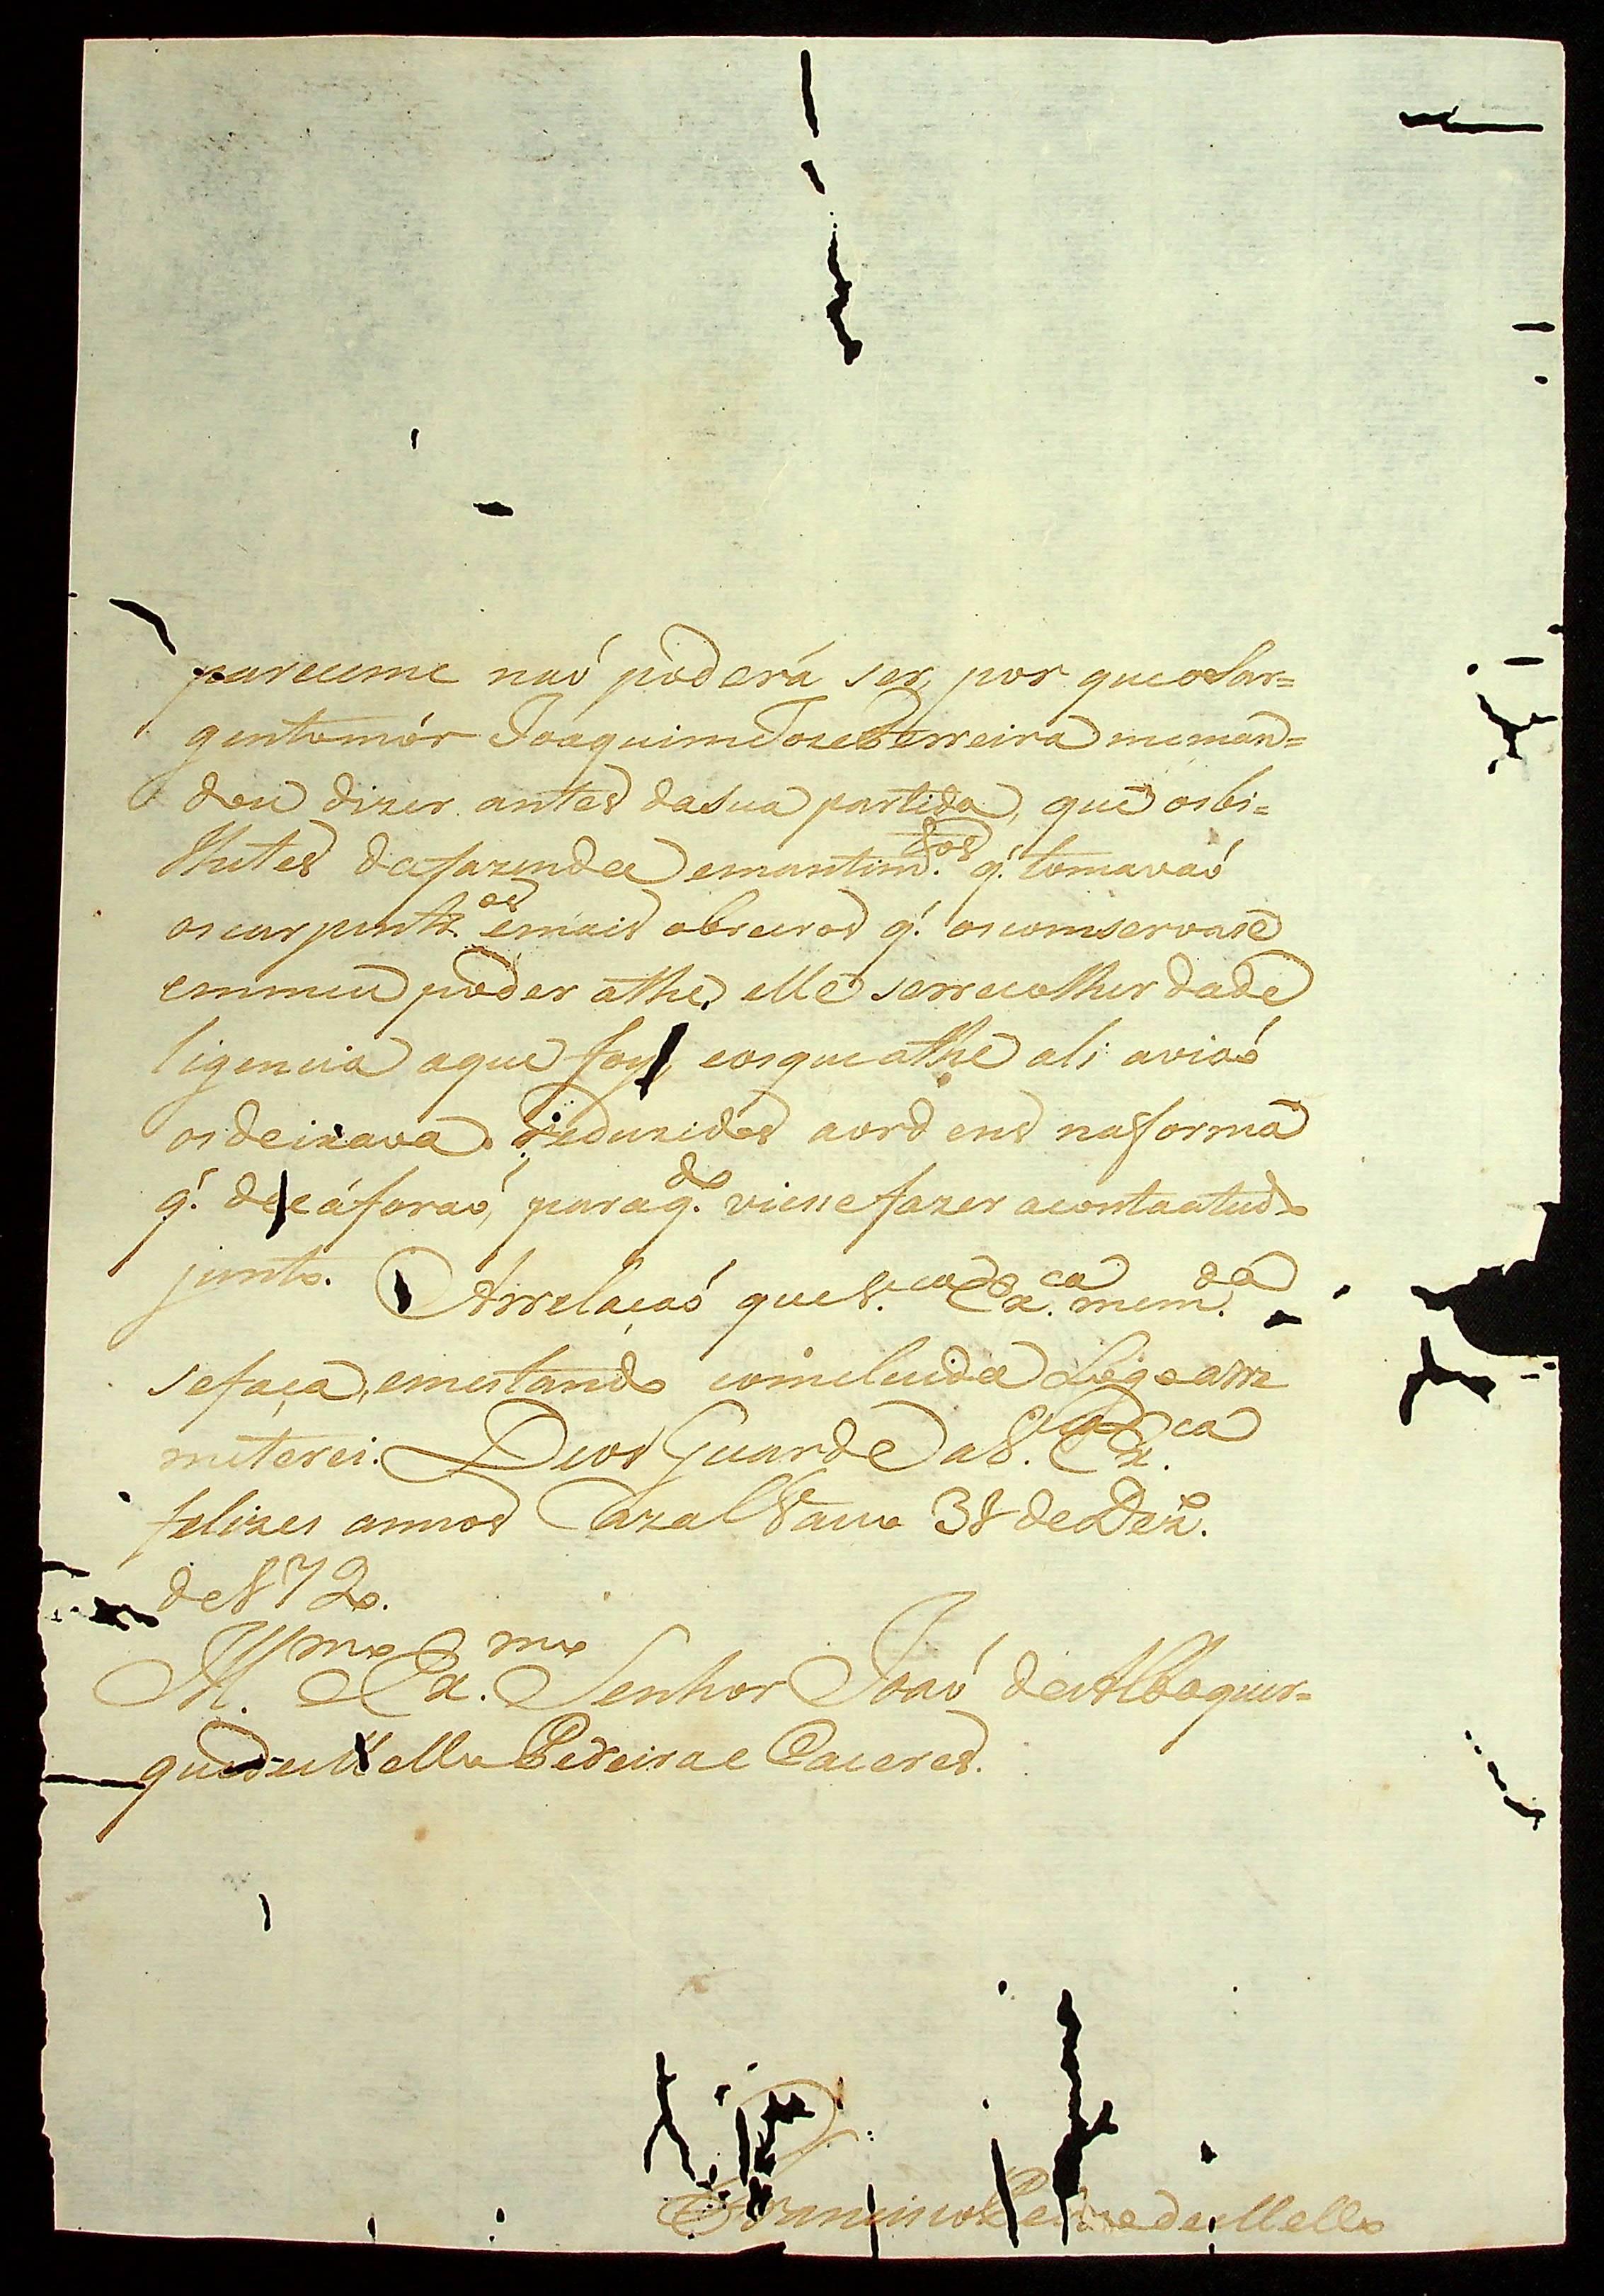 pareceme naó poderá ser, por que o Sar=
gentomór Joaquim Joze Ferreira meman=
dou dizer antes dasua partida, que osbi=
lhetes dafazenda emantim.tos q'. tomavaó
oscarpintr.os emais obreiros q'. oscomservase
emmeu poder athe elle serrecolher dade
ligencia aque foy, eosque athe ali aviaó
osdeixava Reduzidos aordens nasforma
q'. decáforaó, para q.do viesse fazer acontaatudo
junto. Arrelaçaó que V. Ex.ca mem.da
sefaça, emestando comcluida Logo arre
meterei. Deos Guarde aV. Ex.ca
felizes annos Cazal Vasco 38 de Dez.o
de 872.
Ill.mo e Ex.mo Senhor Joaó de Alboquer=
quedeMello Pereira e Caceres.
Francisco Pedro de Mello